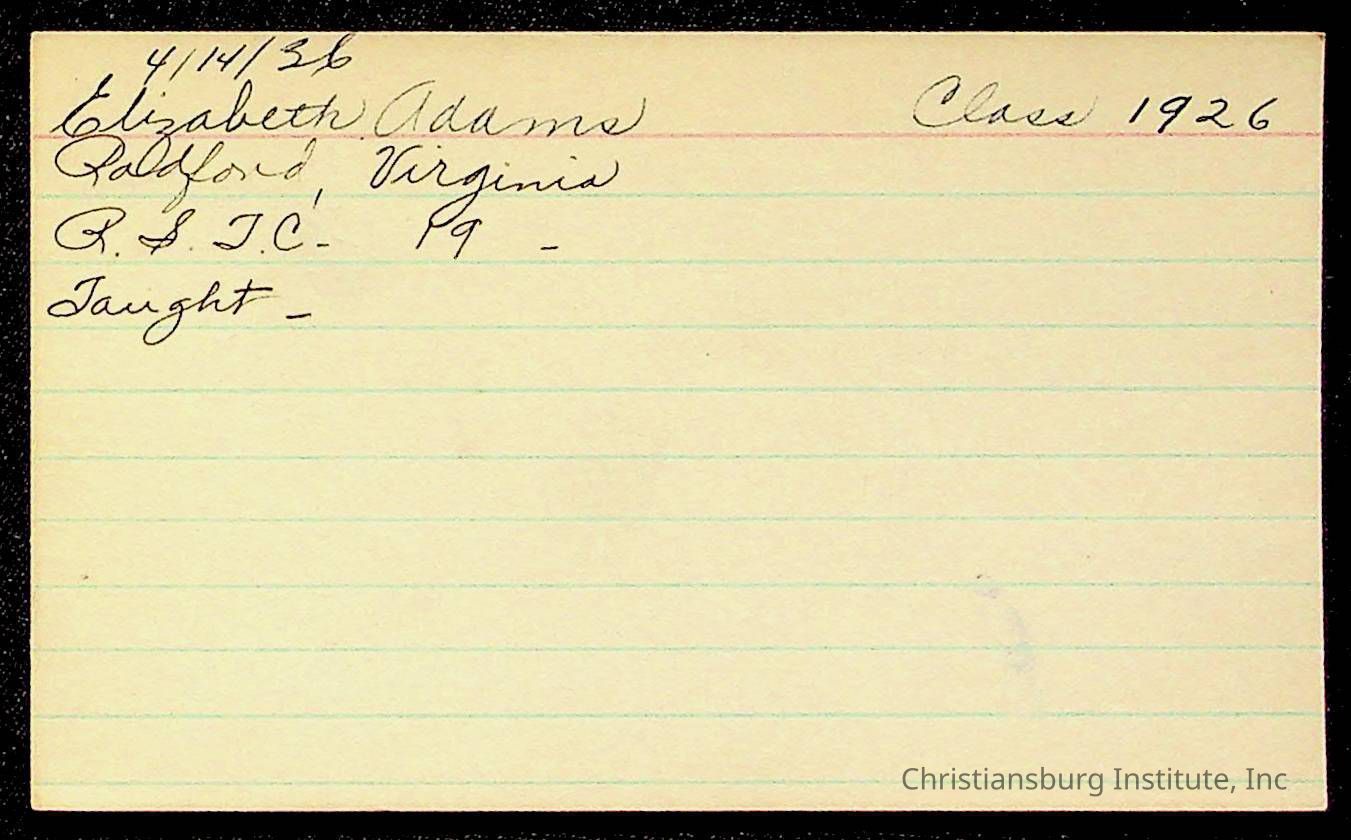 4/14/36
Elizabeth Adams Class 1926
Raldford, Virginia
R. S. T. C. - 19 -
Taught -
Christiansburg Institute, Inc